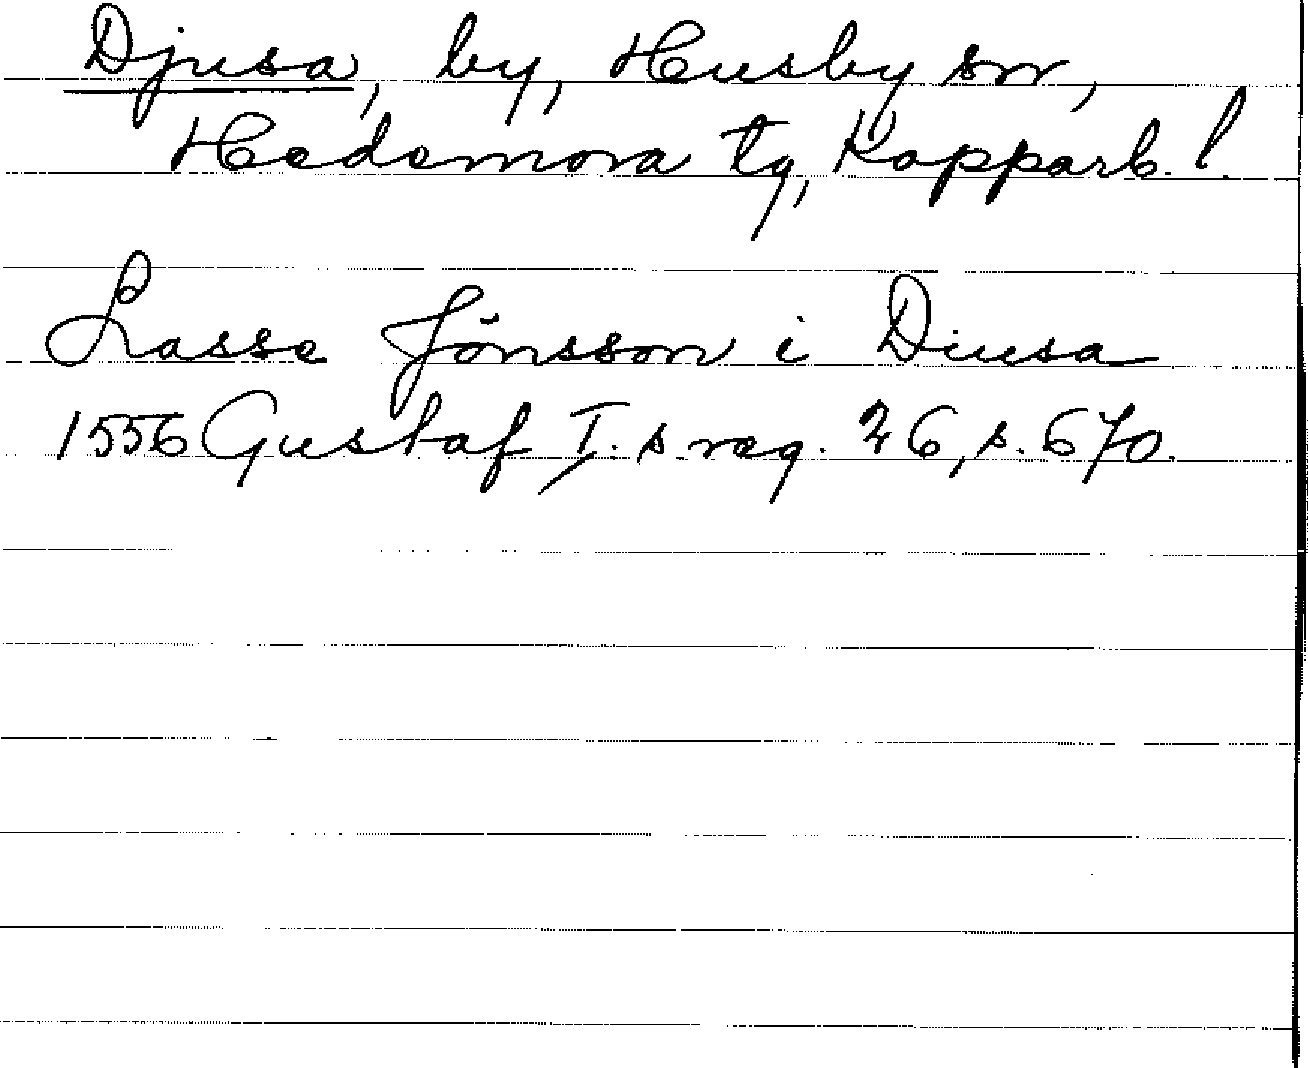 Djusa, by, Husby sn,
Hedemora tg, Kopparb. l.
Lasse Jönsson i Diusa
1556 Gustaf I. s reg. 26, s. 670.